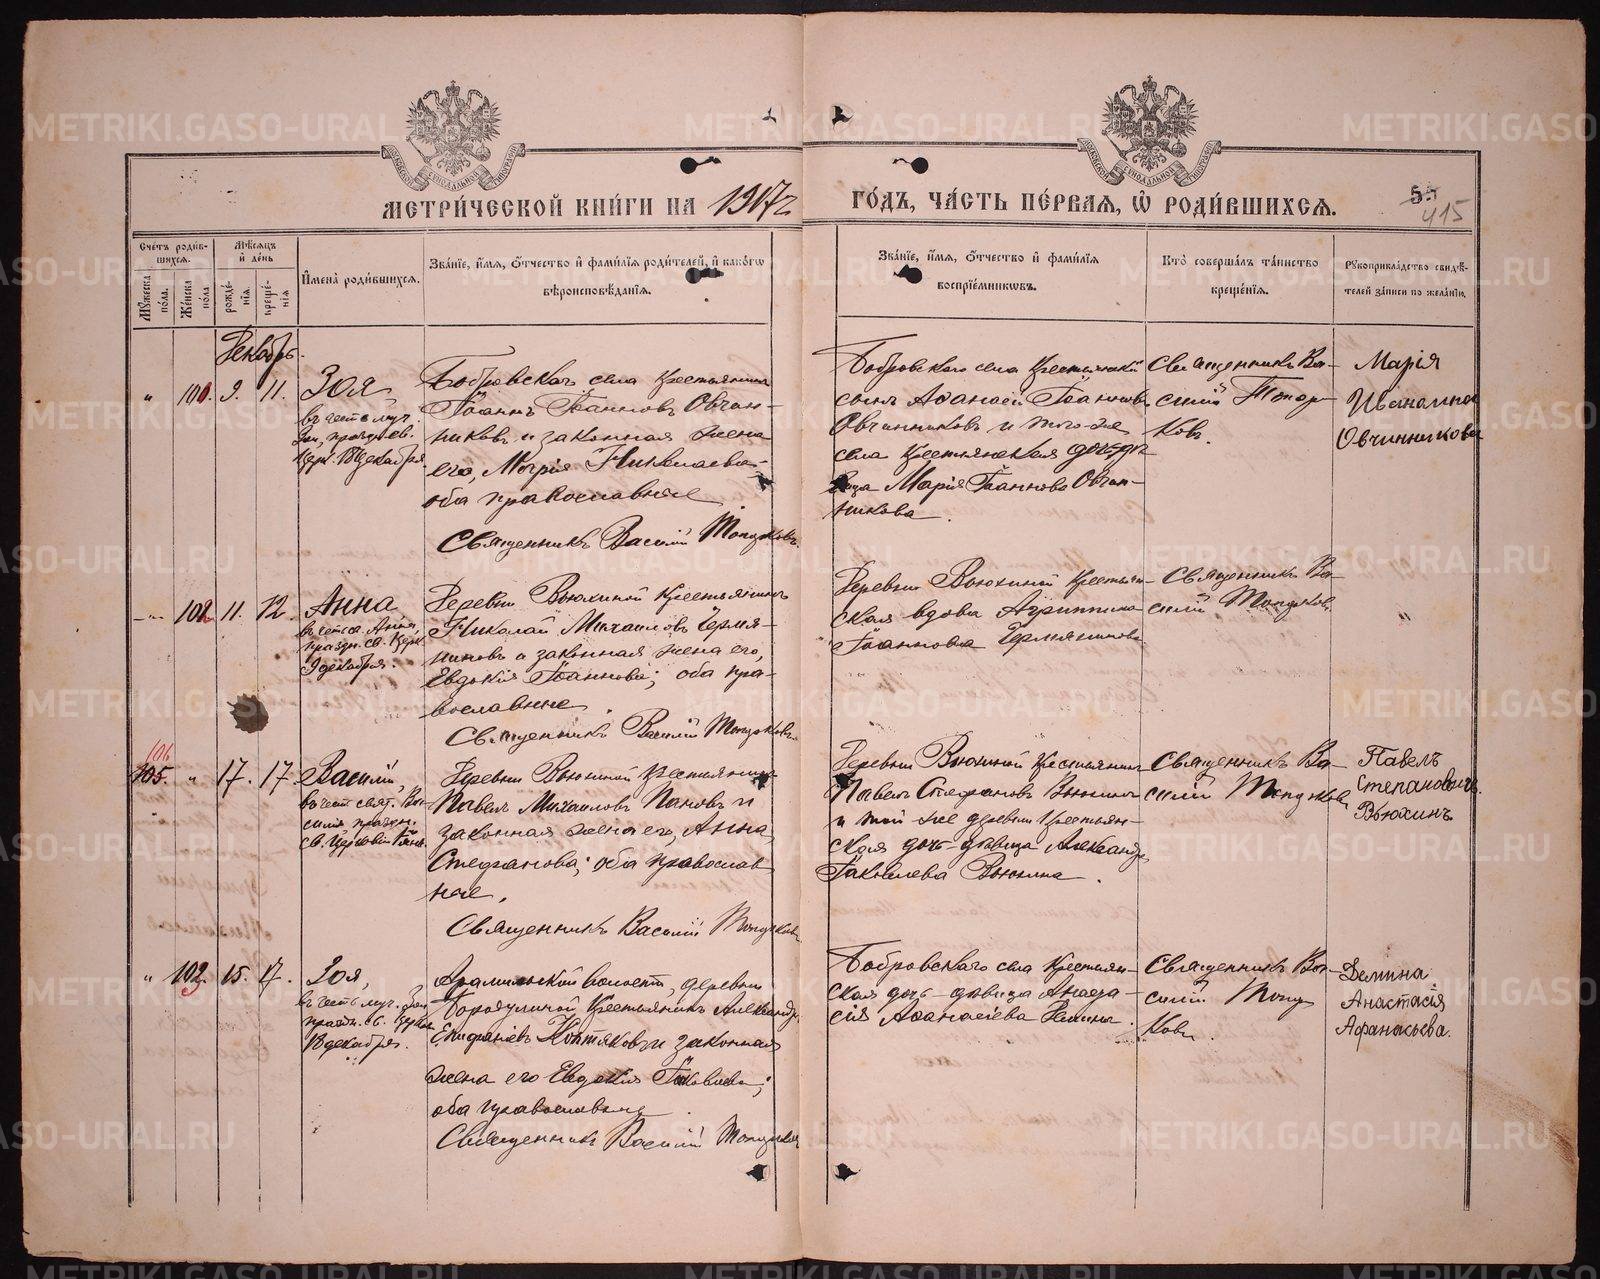 МЕТРИ́ЧЕСКОЙ КНИ́ГИ НА 1917 г
ГО́ДЪ, ЧА́СТЬ ПЕ́РВАЯ, Ѡ҆ РОДИ́ВШИХСЯ.
415
Сче́тъ роди́вшихся.
Му́жеска по́ла.
Же́нска по́ла.
Мѣ́сяцъ и҆ де́нь
рожде́нїя.
креще́нїя
И҆мена̀ роди́вшихся.
Зва́нїе, и҆́мя, ѻ҆́тчество и҆ фами́лїя роди́телей, и҆ како́гѡ
вѣроисповѣ́данїя.
Зва́нїе, и҆́мя, ѻ҆́тчество и҆ фами́лїя
воспрїе́мниковъ.
Кто̀ соверша́лъ та́инство
креще́нїя.
Рꙋкоприкла́дство свидѣ́-
телей за́писи по жела́нїю.
Декабрь.
" 9. 11.
Зоя,
въ честь муч.
Зои, праздн. св.
Церк. 18 декабря.
Бобровскаго села крестьянинъ
Іоаннъ Іоанновъ Овчин-
никовъ и законная жена
его, Марія Николаева,
оба православные
Священникъ Василій Топорковъ.
Бобровскаго села крестьянскій
сынъ Аѳанасій Іоанновъ
Овчинниковъ и того-же
села крестьянская дочь-дѣ-
вица Марія Іоаннова Овчин-
никова.
Священникъ Ва-
силій Топор-
ковъ.
Марія
Ивановна
Овчинникова
102 11. 12.
Анна
въ честь св. Анны,
праздн. св. Церк.
9 декабря.
Деревни Вьюхиной крестьянинъ
Николай Михаиловъ Чермя-
ниновъ и законная жена его,
Евдокія Іоаннова; оба пра-
вославные.
Священникъ Василій Топорковъ.
Деревни Вьюхиной крестьян-
ская вдова Агриппина
Іоаннова Чермянинова
Священникъ Ва-
силій Топорковъ.
"
106
105. " 17. 17.
Василій,
въ честь свят. Ва-
силія, праздн.
св. Церковію 1 янв.
Деревни Вьюхиной крестьянинъ
Павелъ Михаиловъ Пановъ и
законная жена его, Анна
Стефанова; оба православ-
ные.
Священникъ Василій Топорковъ
Деревни Вьюхиной крестьянинъ
Павелъ Стефановъ Вьюхинъ
и той-же деревни крестьян-
ская дочь-дѣвица Александра
Іаковлева Вьюхина.
Священникъ Ва-
силій Топорковъ
Павелъ
Степановичъ
Вьюхинъ
" 103. 15. 17.
Зоя,
въ честь муч. Зои
праздн. св. Церков.
18 декабря.
Арамильской волости, деревни
Бородулиной крестьянинъ Александръ
Епифаніевъ Контяковъ и законная
жена его Евдокія Іаковлева;
оба православные.
Священникъ Василій Топорковъ
Бобровскаго села крестьян-
ская дочь-дѣвица Анаста-
сія Аѳанасіева Демина.
Священникъ Ва-
силій Топор
ковъ
Демина
Анастасія
Афанасьева.
METRIKI.GASO-URAL.RU